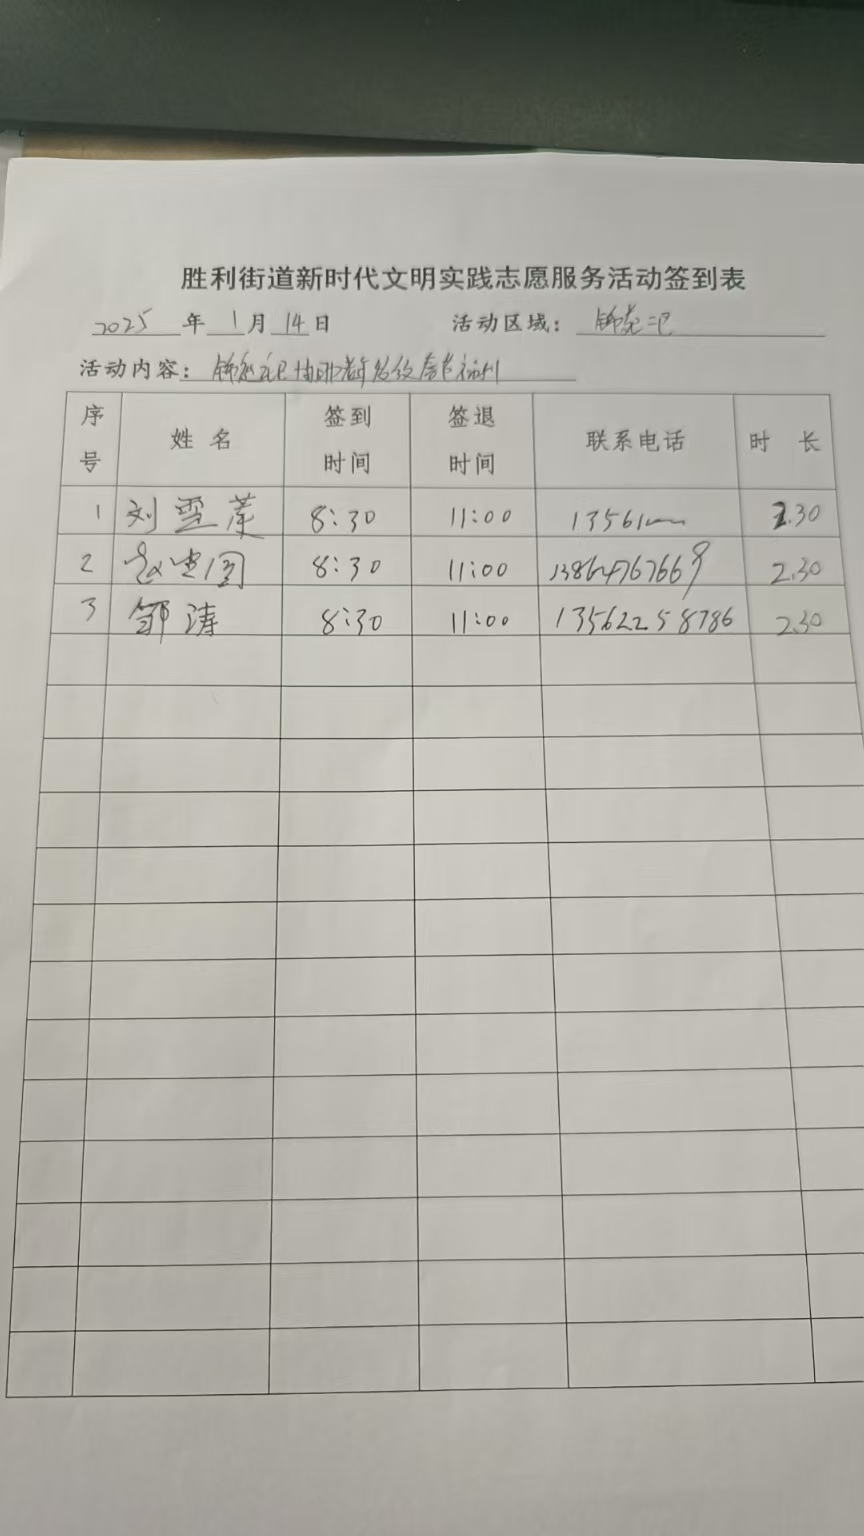 胜利街道新时代文明实践志愿服务活动签到表
2025 年 1 月 14 日 活动区域： 锦苑二巴
活动内容： 锦苑二巴
序号 姓 名 签到时间 签退时间 联系电话 时 长
1 刘雪莲 8:30 11:00 13561 2.30
2 赵忠国 8:30 11:00 13864767669 2.30
3 邹涛 8:30 11:00 13562258786 2.30